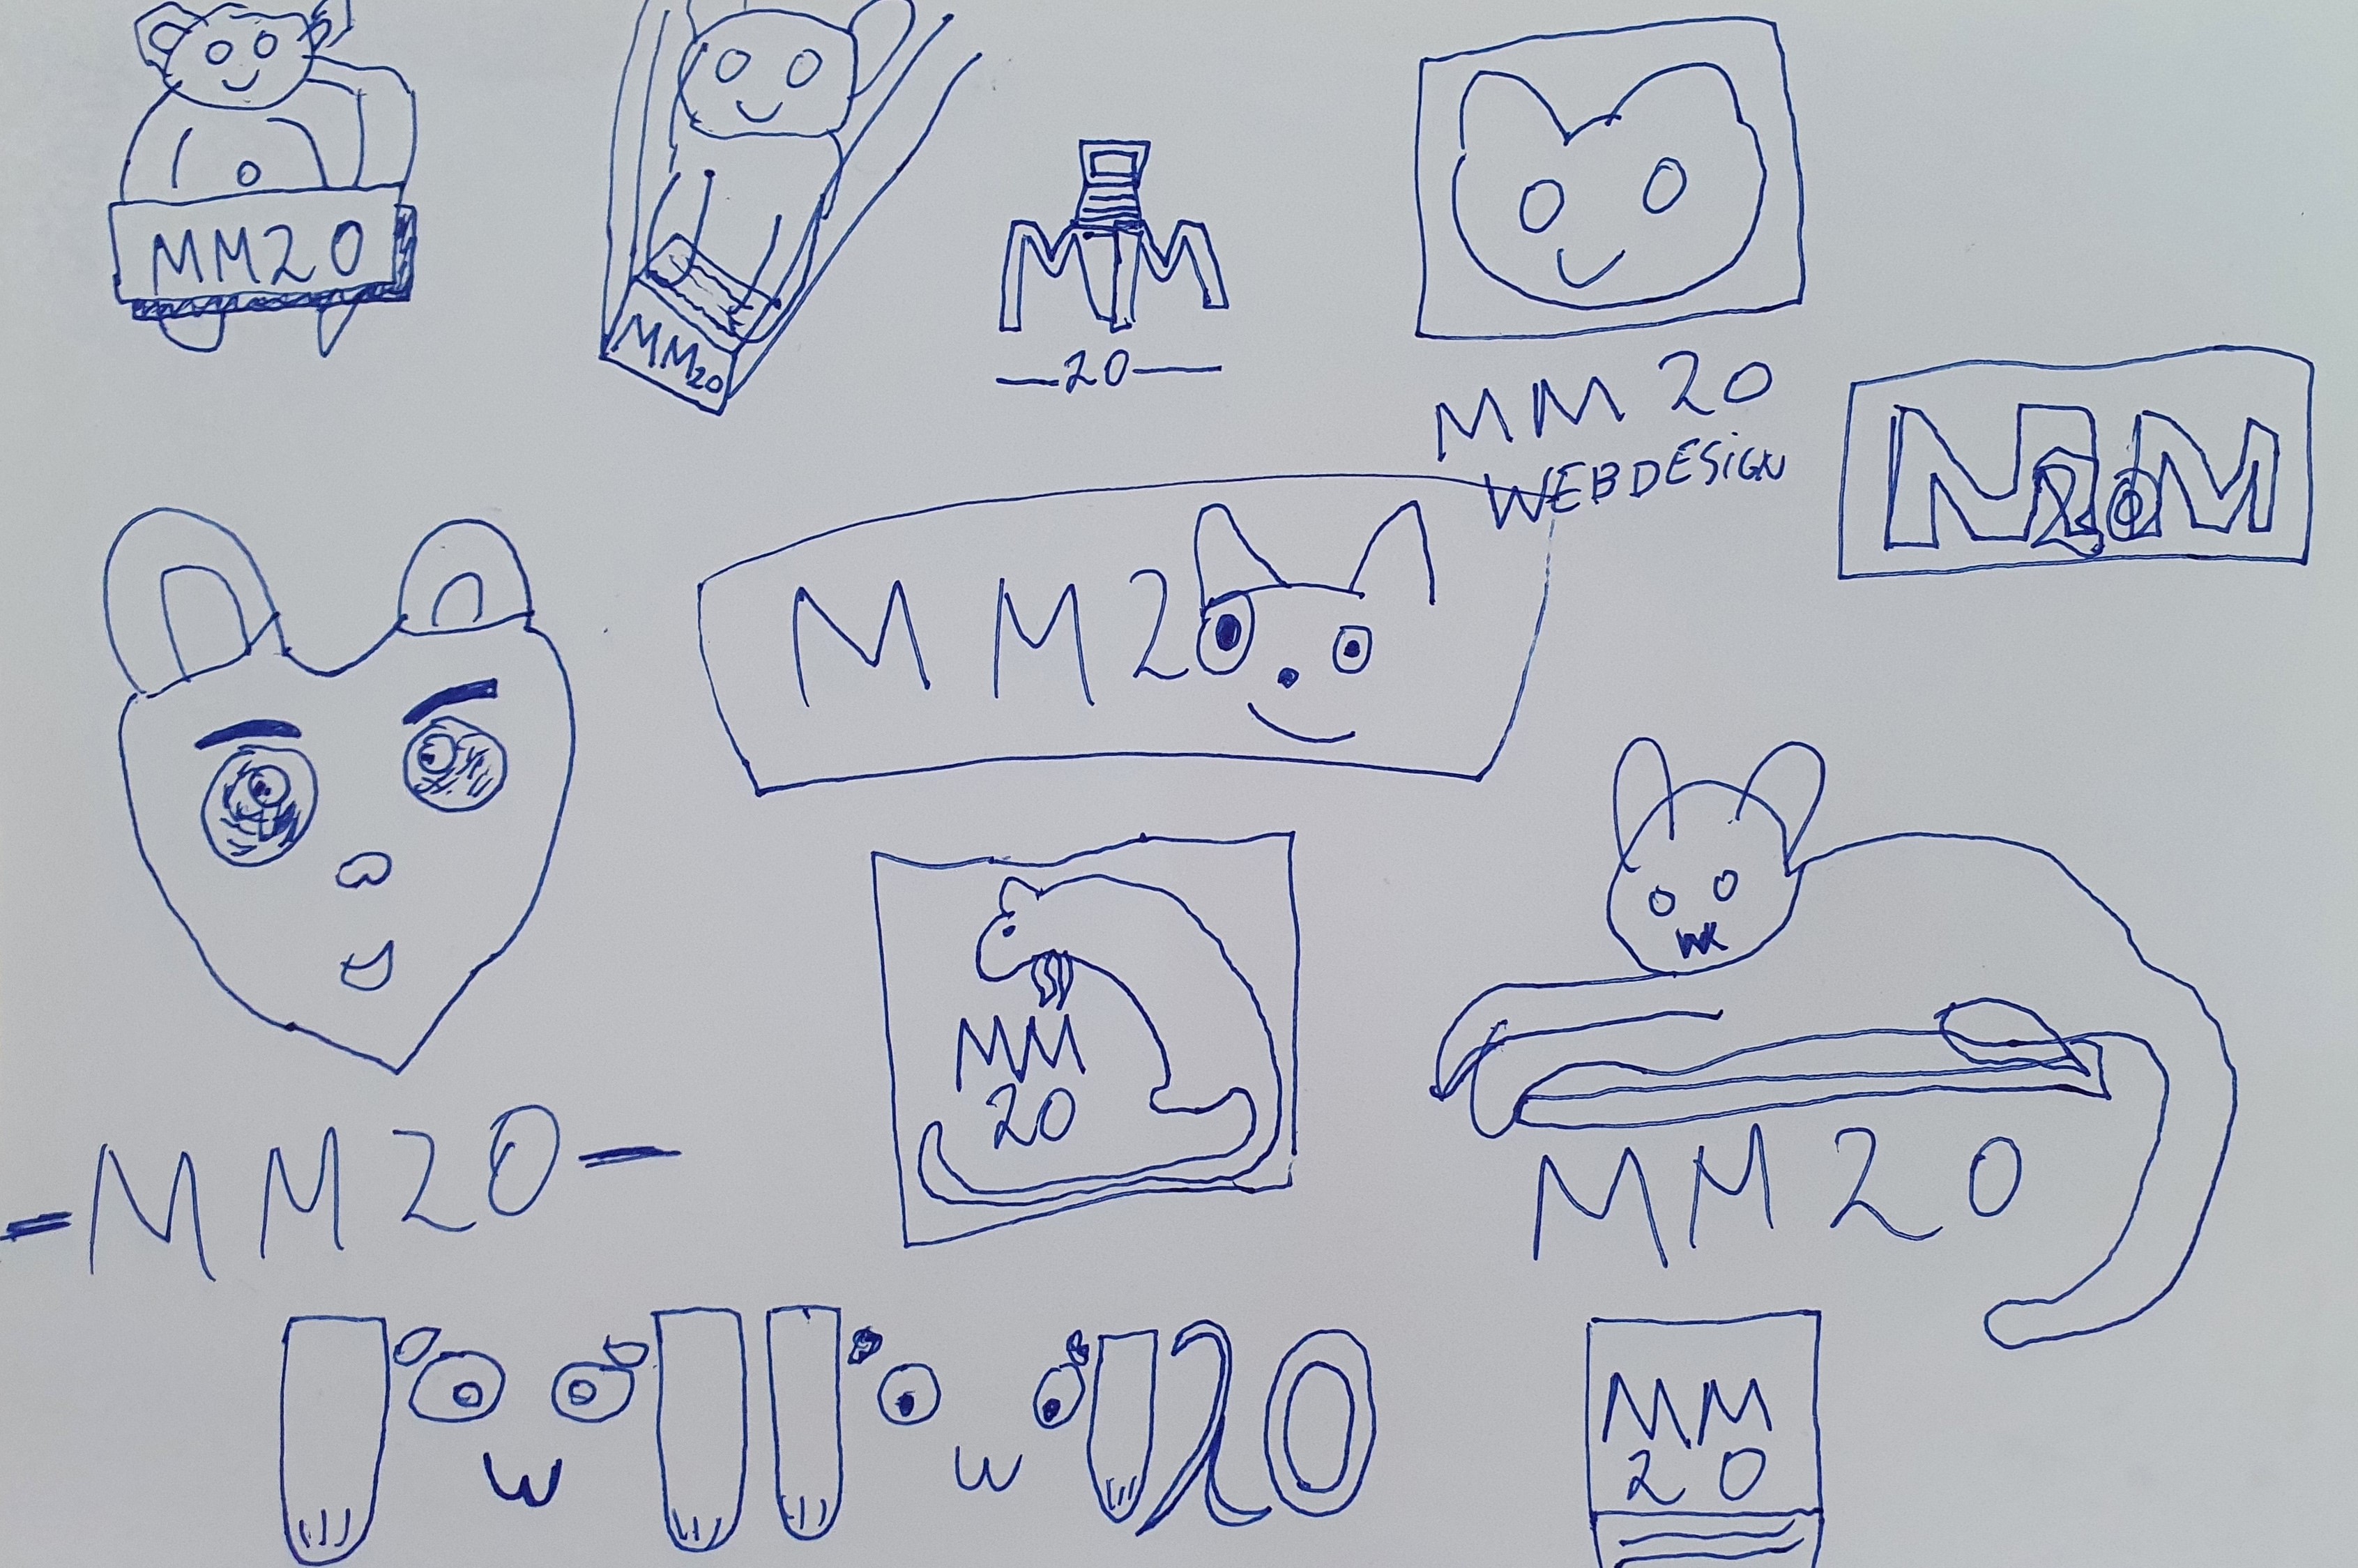 MM20
MM20
MM
—20—
MM 20
WEBDESIGN
MM
20
MM20
MM
20
-MM20-
MM20
20
MM
20